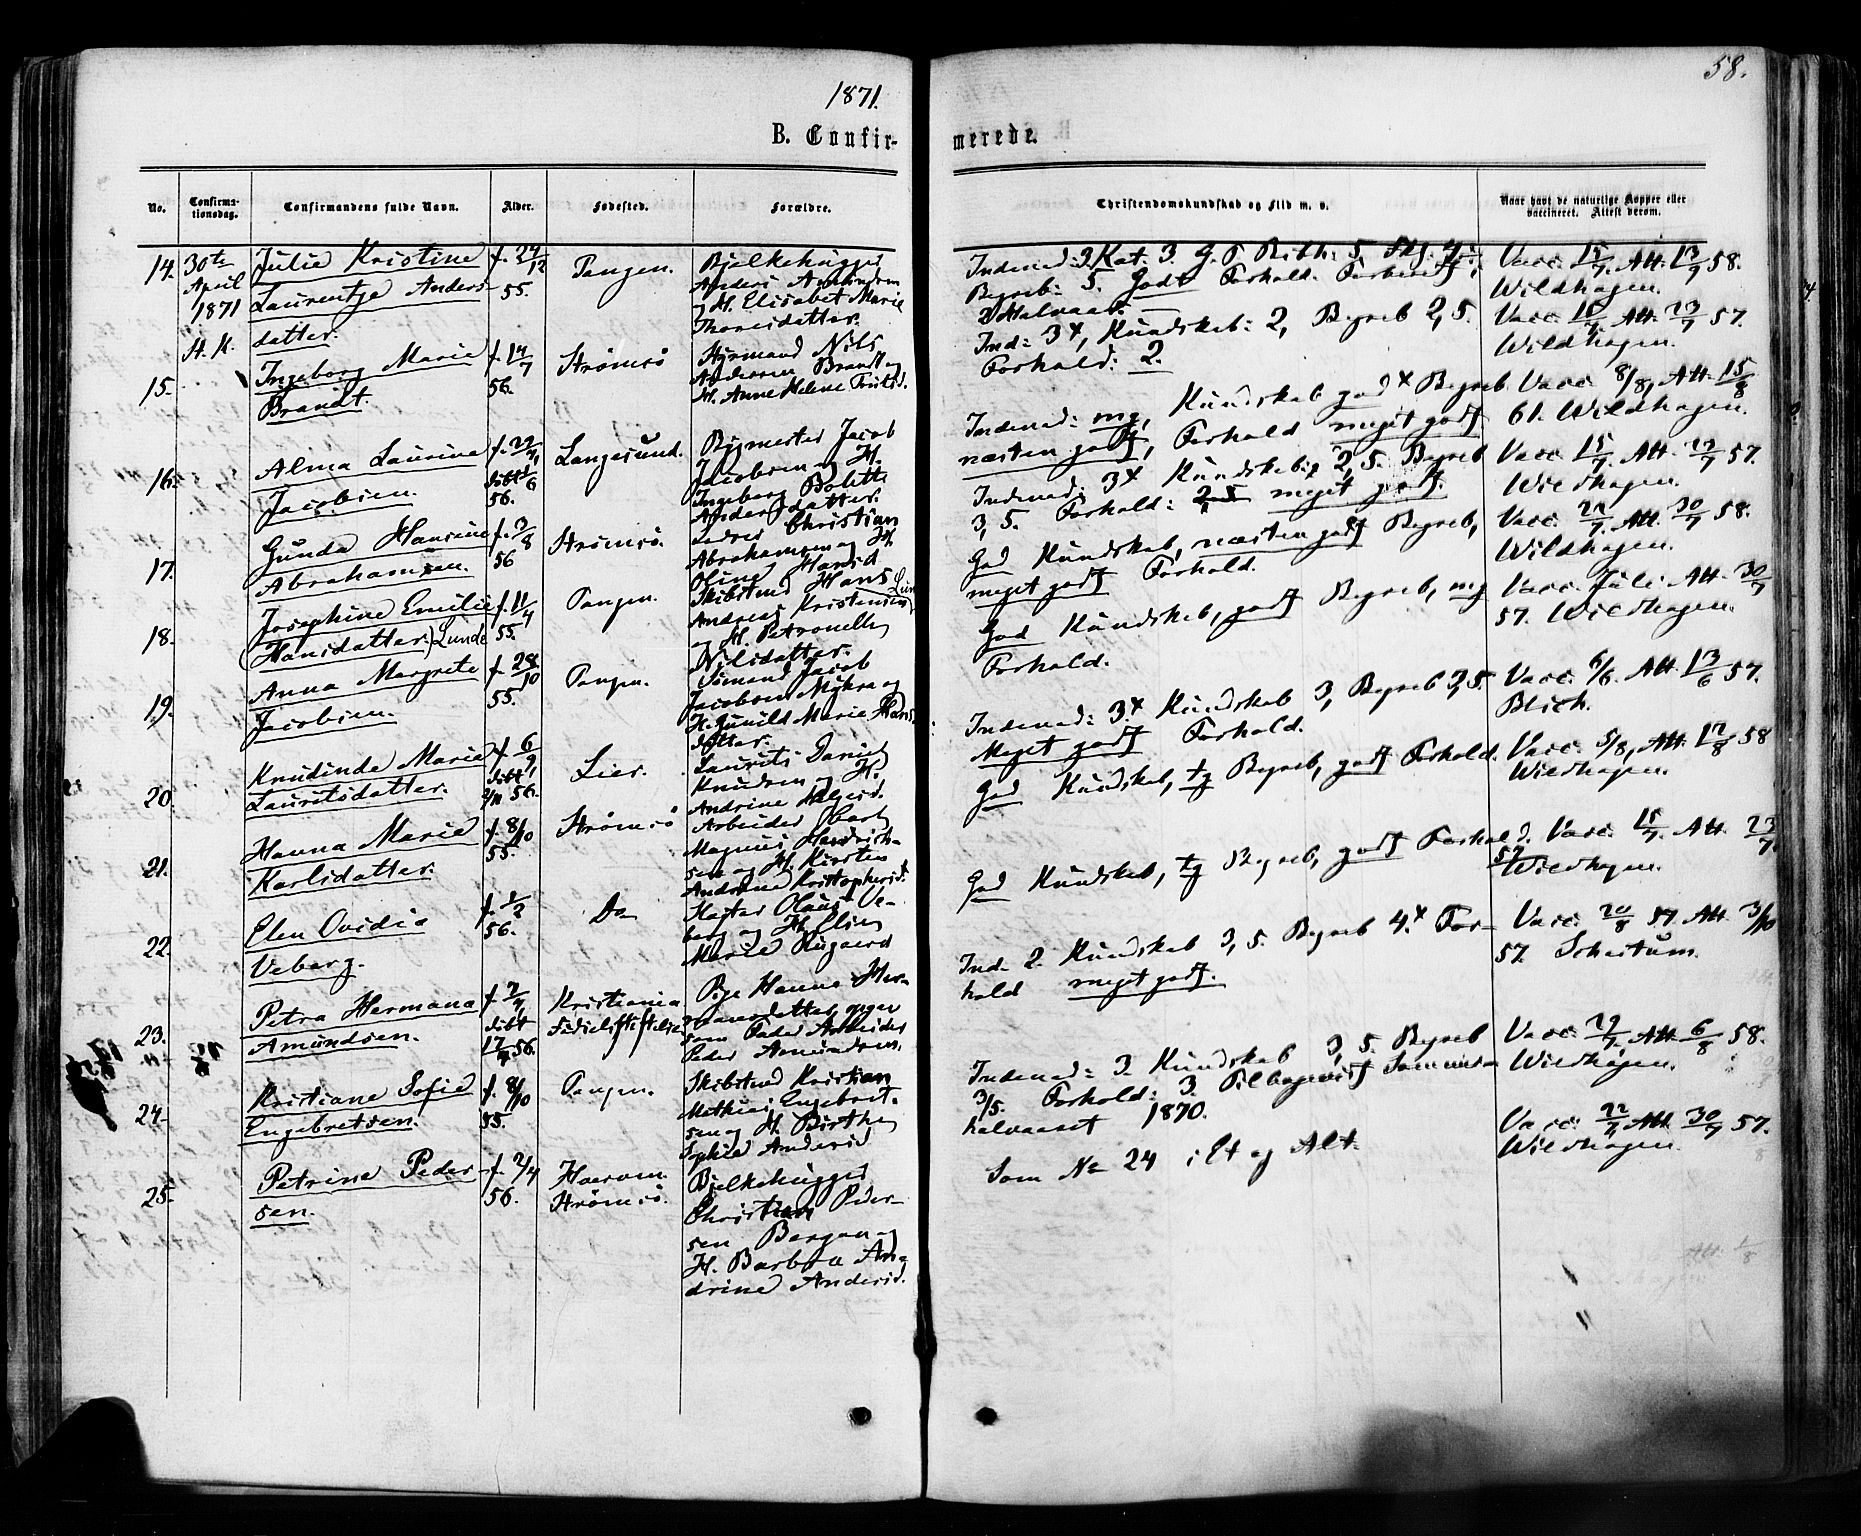 1871.
58.
B. Confir-
merede.
No.
Confirmationsdag.
Confirmandens fulde Navn.
Alder.
Fødested.
Forældre.
Christendomskundskab og Flid m. v.
Naar havt de naturlige Kopper eller vaccineret. Attest derom.
14. 30te April 1871 H. K.
Julie Kristine
Laurentze Anders-
datter.
f. 24/12
55.
Tangen.
Bjelkehugger
Anders Amundsen
og H. Elisabet Marie
Thoresdatter.
Vacc. 15/7. Att. 13/7 58.
Wildhagen.
15.
Ingeborg Marie
Brandt.
f. 14/7
56.
Strømsø
Styrmand Nils
Andersen Brandt og
H. Anne Helene
Ind: 3x, Kundskab: 2, Begreb 2,5.
Forhold: 2.
Wildhagen.
16.
Alma Laurine
Jacobsen.
56.
Langesund.
Rygmester Jacob
Jacobsen og H.
Ingeborg Bolette
Andersdatter.
Indenad: mg, Kundskab god x Begreb
næsten godt, Forhold meget godt
Vacc. 8/8, Att. 15/8
61. Wildhagen.
17.
Gunda Hansine
Abrahamsen.
f. 3/8
56
Strømsø.
Christian
Abrahamsen og H.
Oline Hansd
3,5. Forhold: meget godt.
Vacc. 15/7. Att. 22/7 57.
Wildhagen.
18.
Josephine Emilie
Hansdatter. (Lunde
f. 11/4
55.
Tangen.
Skibstmd Hans
Andreas Kristensen
og H. Petronelle
Nilsdatter.
God Kundskab, næsten godt Begreb,
meget godt Forhold.
Att. 30/7 58.
Wildhagen.
19.
Anna Margrete
Jacobsen.
f. 28/10
55.
Tangen.
Sømand Jacob
Jacobsen Myhra og
H. Gunild Marie Hans-
datter.
God Kundskab, godt Begreb, mg
Forhold.
Vacc. Juli. Att. 30/7
57. Wildhagen.
20.
Knudinda Marie
Lauritsdatter.
f. 6/9
døbt
2/11 56.
Lier.
Laurits Daniel
Knudsen og H.
Andrine
Indenad: 3x Kundskab 3, Begreb 3,5.
Meget godt Forhold.
Vacc. 6/6. Att. 13/6 57.
Blich.
21.
Hanna Marie
Karlsdatter.
f. 8/10
55.
Strømsø
Arbeider
Magnus
sen og H. Kirsten
Andrine Kristophersd.
God Kundskab, tg Begreb, godt Forhold.
Vacc. 5/8, Att. 12/8 58
Wildhagen.
22.
Elen Ovidia
Veberg.
f. 1/2
56.
Do
Olaus Ve-
berg og H. Elin
Marie
God Kundskab, tg Begreb, godt Forhold.
Vacc. 15/7. Att. 23/7.
57. Wildhagen.
23.
Petra Hermana
Amundsen.
f. 7/4
døbt
17/4 56.
Kristiania
Fødselsstiftelse.
Pige Hanna Her-
mansdatter, opgiver
som Fader Arbeider
Peder Amundsen.
Ind. 2. Kundskab 3,5. Begreb 4.x For-
hold meget godt.
Vacc. 20/8 57 Att. 3/10
57. Schestum.
24.
Kristiane Sofie
Engebretsen.
f. 8/10
55.
Tangen.
Skibstmd Kristian
Mathias Engebret-
sen og H. Birthe
Sophie Andersd
Indenad: 3. Kundskab 3,5. Begreb
3/5. Forhold: 3. Tilbagevist Sommer-
halvaaret 1870.
Vacc. 29/7. Att. 6/8 58.
Wildhagen.
25.
Petrine Peder-
sen.
f. 2/4
56.
Strømsø.
Bjelkehugger
Christian Peder-
sen Bergan og
H. Barbra An-
drine Andersd.
Som No 24 i Et og Alt.
Vacc. 22/7 Att. 30/7 57.
Wildhagen.